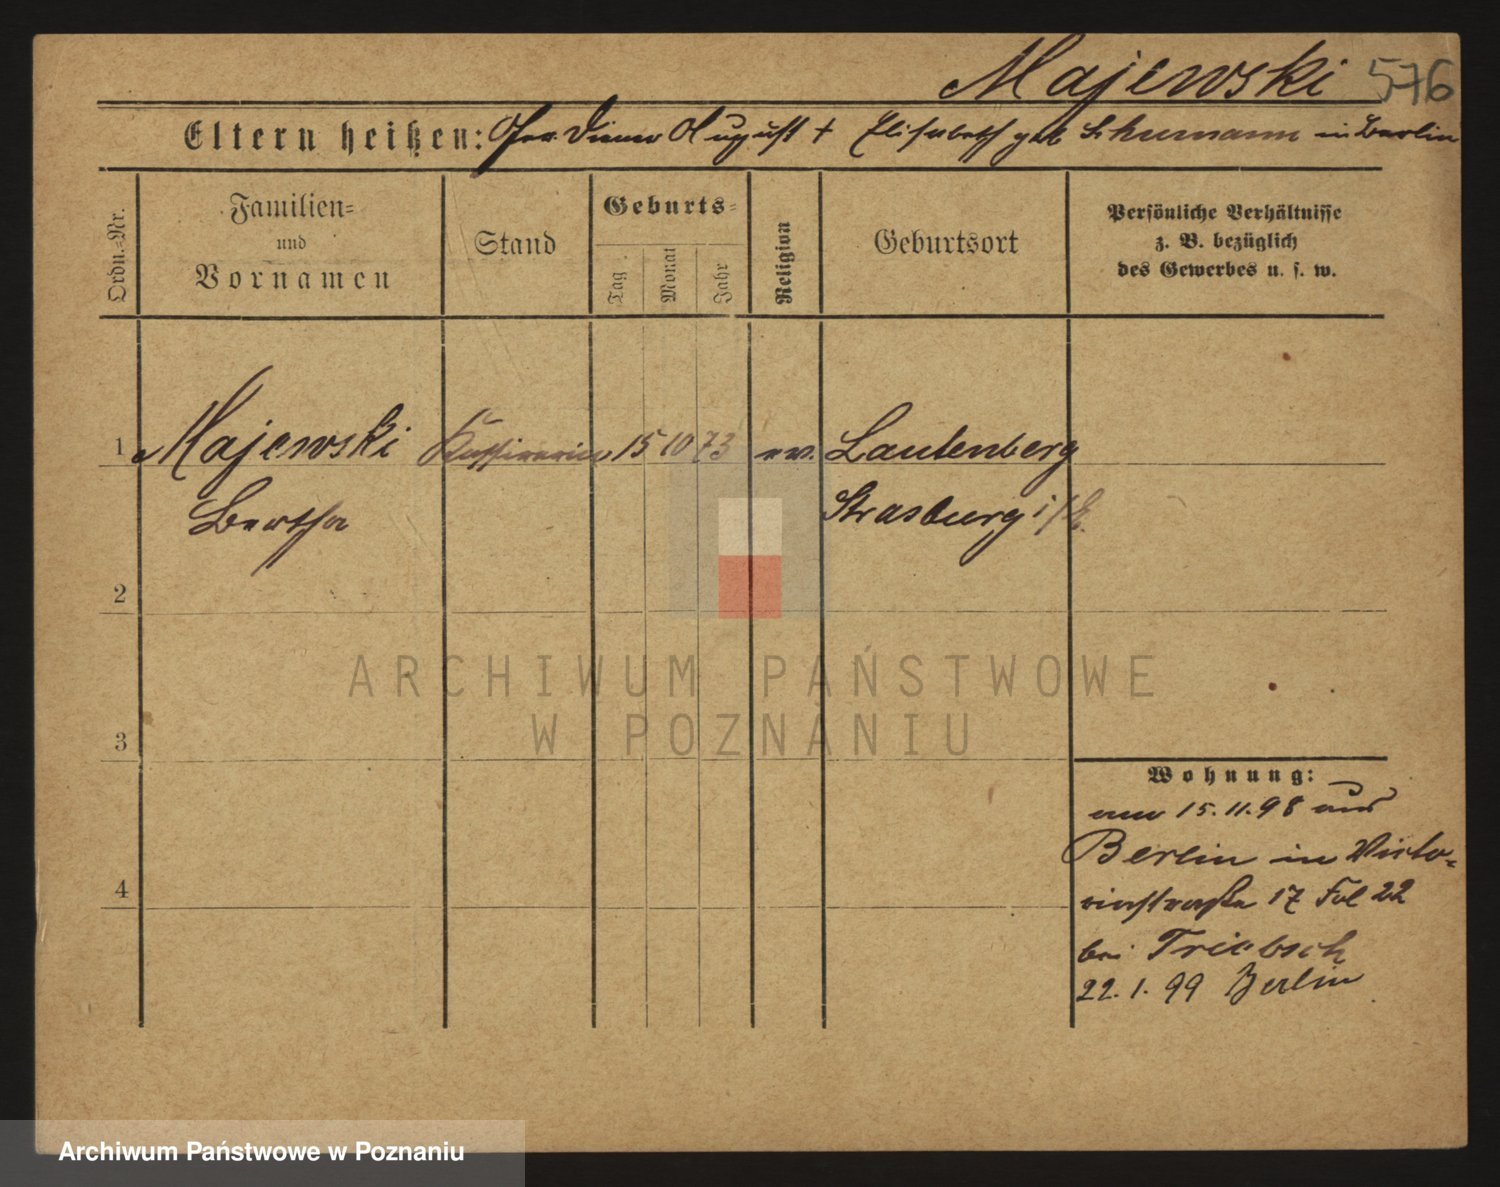 Majewski 576
Eltern heißen: August † Elisabeth geb Schumann in Berlin
Ordn.-Nr.
Familien-
und
Vornamen
Stand
Geburts-
Tag
Monat
Jahr
Religion
Geburtsort
Persönliche Verhältnisse
z. B. bezüglich
des Gewerbes u. s. w.
1 Majewski Kassirerin 15 10 73 ev. Lautenberg
Bertha Strasburg
2
ARCHIWUM PAŃSTWOWE
W POZNANIU
3
Wohnung:
am 15.11.98 aus
Berlin in Victo-
riastraße 17 Fol 22
bei Triebsch
22. 1. 99 Berlin
4
Archiwum Państwowe w Poznaniu